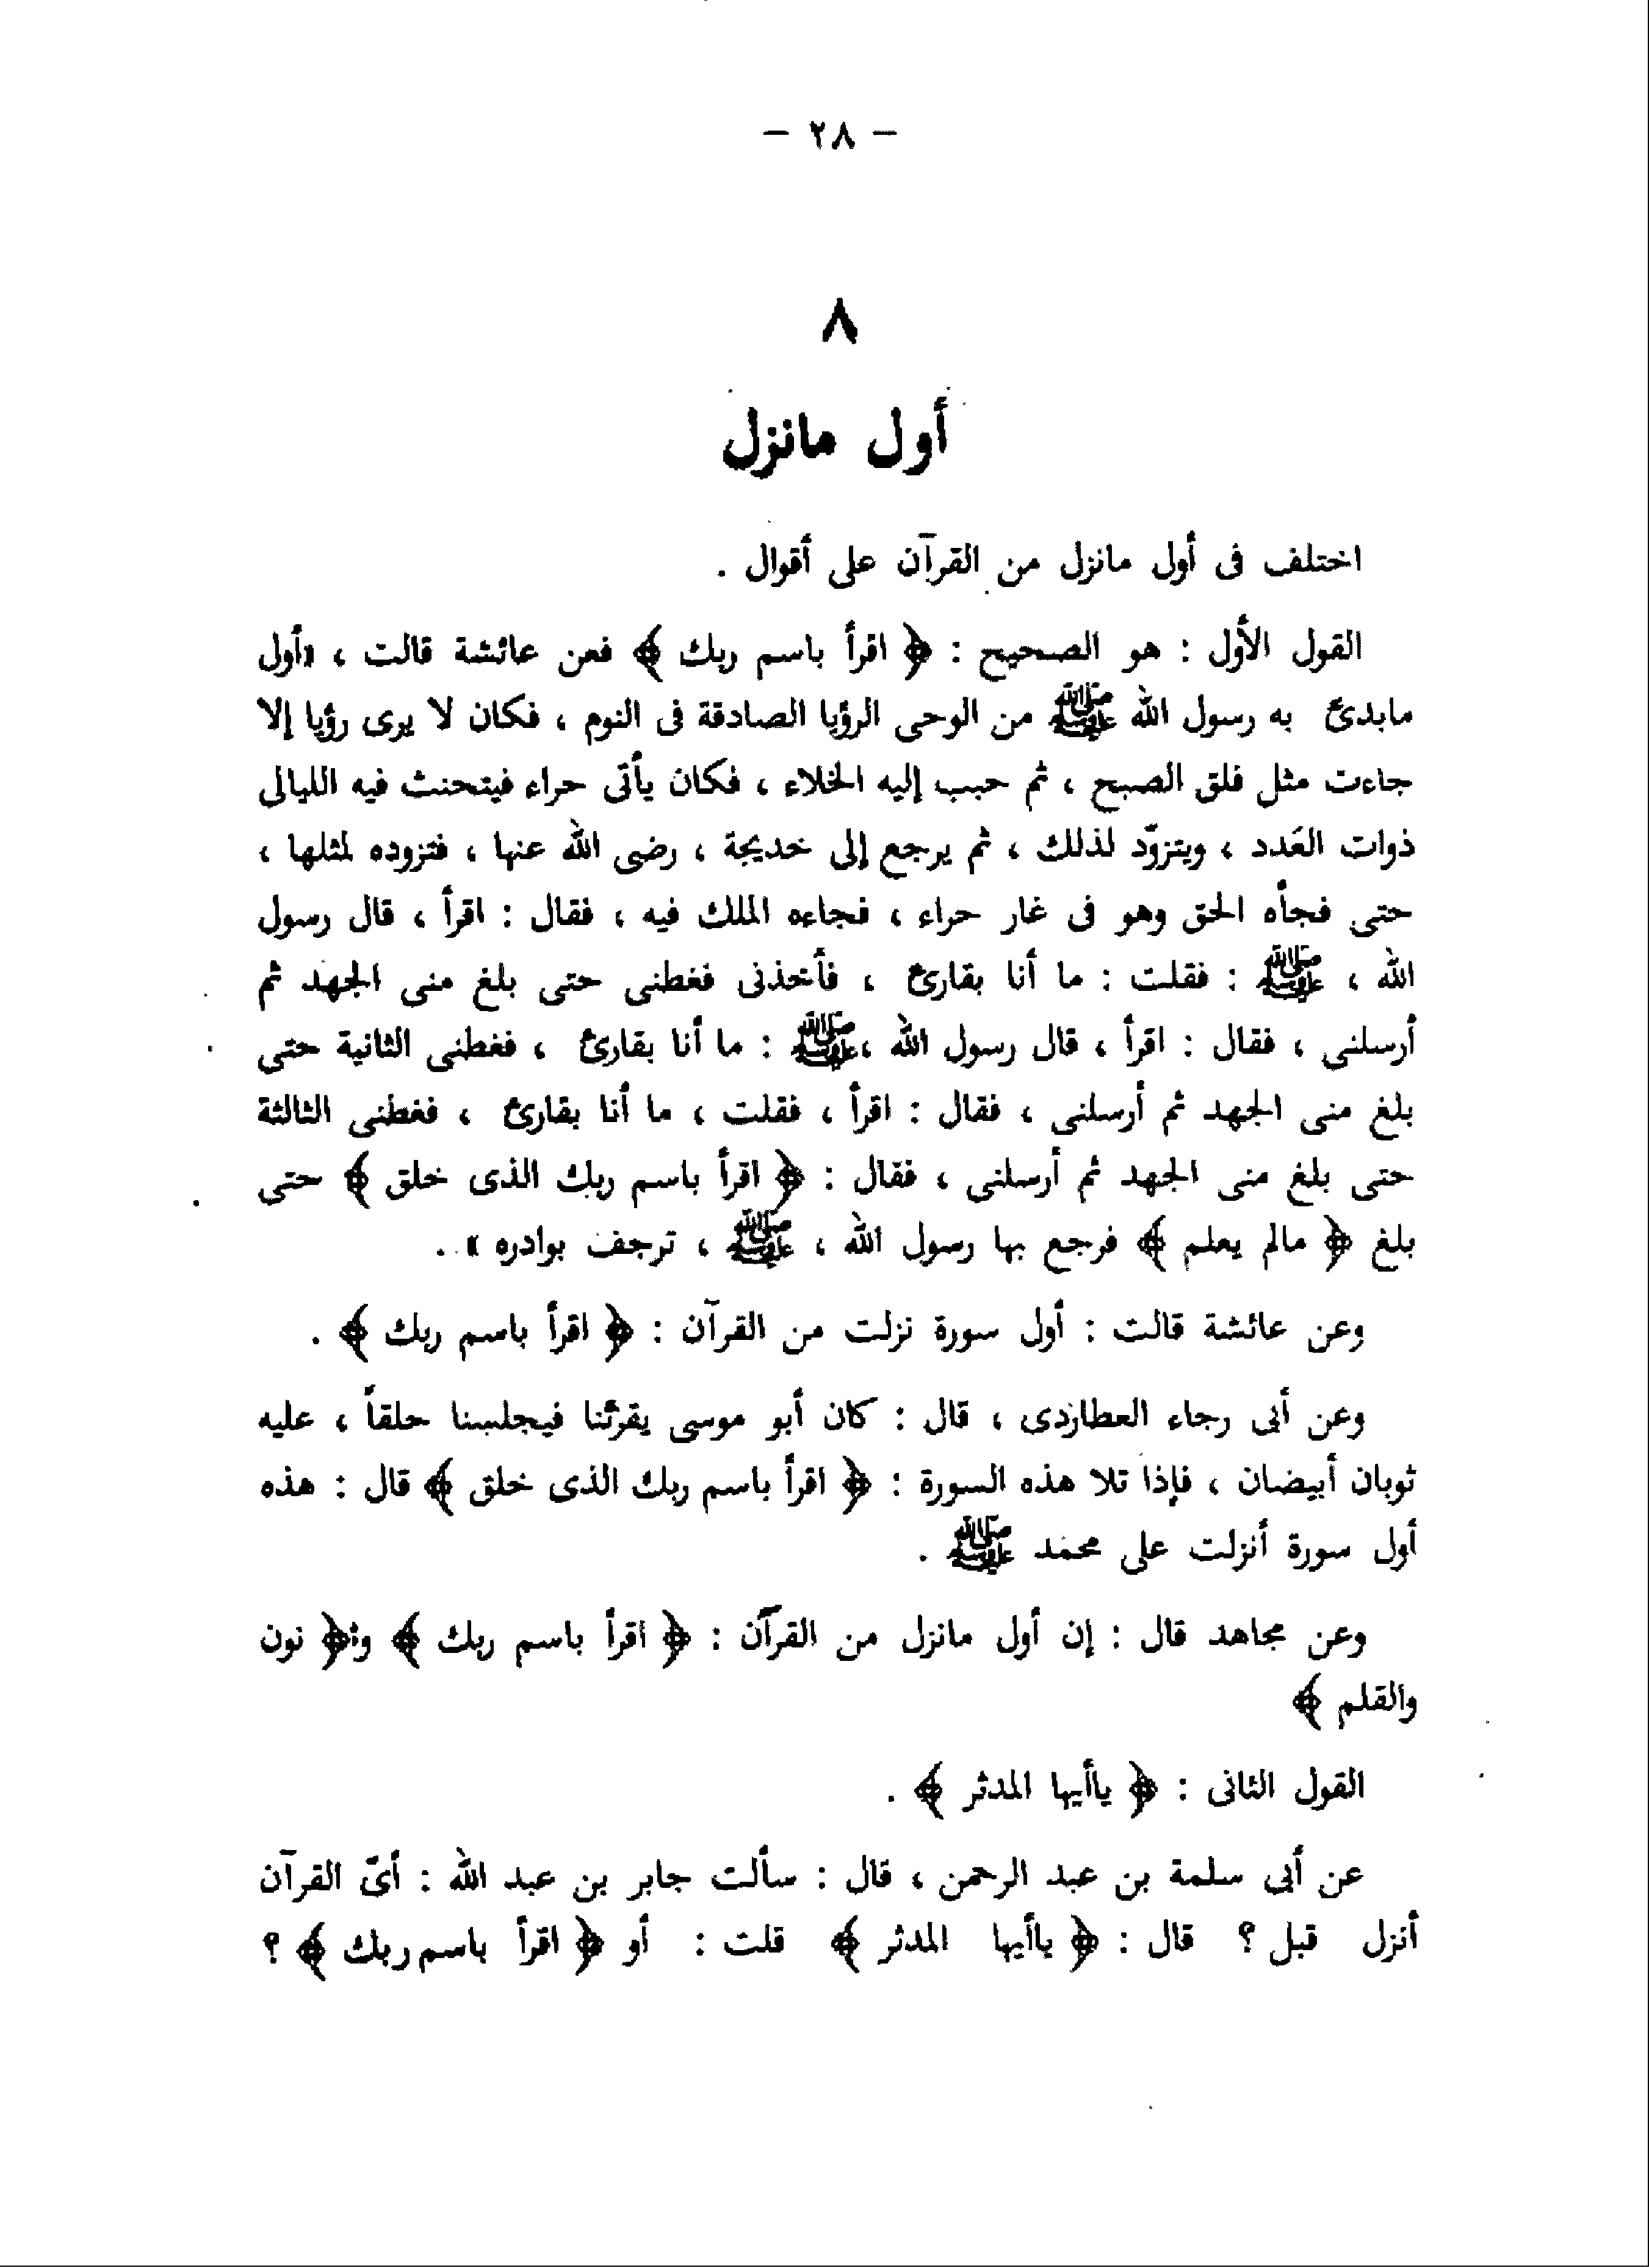 — ٢٨ —
٨
أول مانزل
اختلف فى أول مانزل من القرآن على أقوال .
القول الأول : هو الصحيح : ﴿ اقرأ باسم ربك ﴾ فعن عائشة قالت ، «أول
مابدئ به رسول الله ﷺ من الوحى الرؤيا الصادقة فى النوم ، فكان لا يرى رؤيا إلا
جاءت مثل فلق الصبح ، ثم حبب إليه الخلاء ، فكان يأتى حراء فيتحنث فيه الليالى
ذوات العَدد ، ويتزوّد لذلك ، ثم يرجع إلى خديجة ، رضى الله عنها ، فتزوده لمثلها ،
حتى فجأه الحق وهو فى غار حراء ، فجاءه الملك فيه ، فقال : اقرأ ، قال رسول
الله ، ﷺ : فقلت : ما أنا بقارئ ، فأخذنى فغطنى حتى بلغ منى الجهد ثم
أرسلنى ، فقال : اقرأ ، قال رسول الله ،ﷺ : ما أنا بقارئ ، فغطنى الثانية حتى
بلغ منى الجهد ثم أرسلنى ، فقال : اقرأ ، فقلت ، ما أنا بقارئ ، فغطنى الثالثة
حتى بلغ منى الجهد ثم أرسلنى ، فقال : ﴿ اقرأ باسم ربك الذى خلق ﴾ حتى
بلغ ﴿ مالم يعلم ﴾ فرجع بها رسول الله ، ﷺ ، ترجف بوادره » .
وعن عائشة قالت : أول سورة نزلت من القرآن : ﴿ اقرأ باسم ربك ﴾ .
وعن أبى رجاء العطازدى ، قال : كان أبو موسى يقرئنا فيجلسنا حلقاً ، عليه
ثوبان أبيضان ، فإذا تلا هذه السورة : ﴿ اقرأ باسم ربك الذى خلق ﴾ قال : هذه
أول سورة أنزلت على محمد ﷺ .
وعن مجاهد قال : إن أول مانزل من القرآن : ﴿ اقرأ باسم ربك ﴾ و﴿ نون
والقلم ﴾
القول الثانى : ﴿ ياأيها المدثر ﴾ .
عن أبى سلمة بن عبد الرحمن ، قال : سألت جابر بن عبد الله : أىّ القرآن
أنزل قبل ؟ قال : ﴿ ياأيها المدثر ﴾ قلت : أو ﴿ اقرأ باسم ربك ﴾ ؟